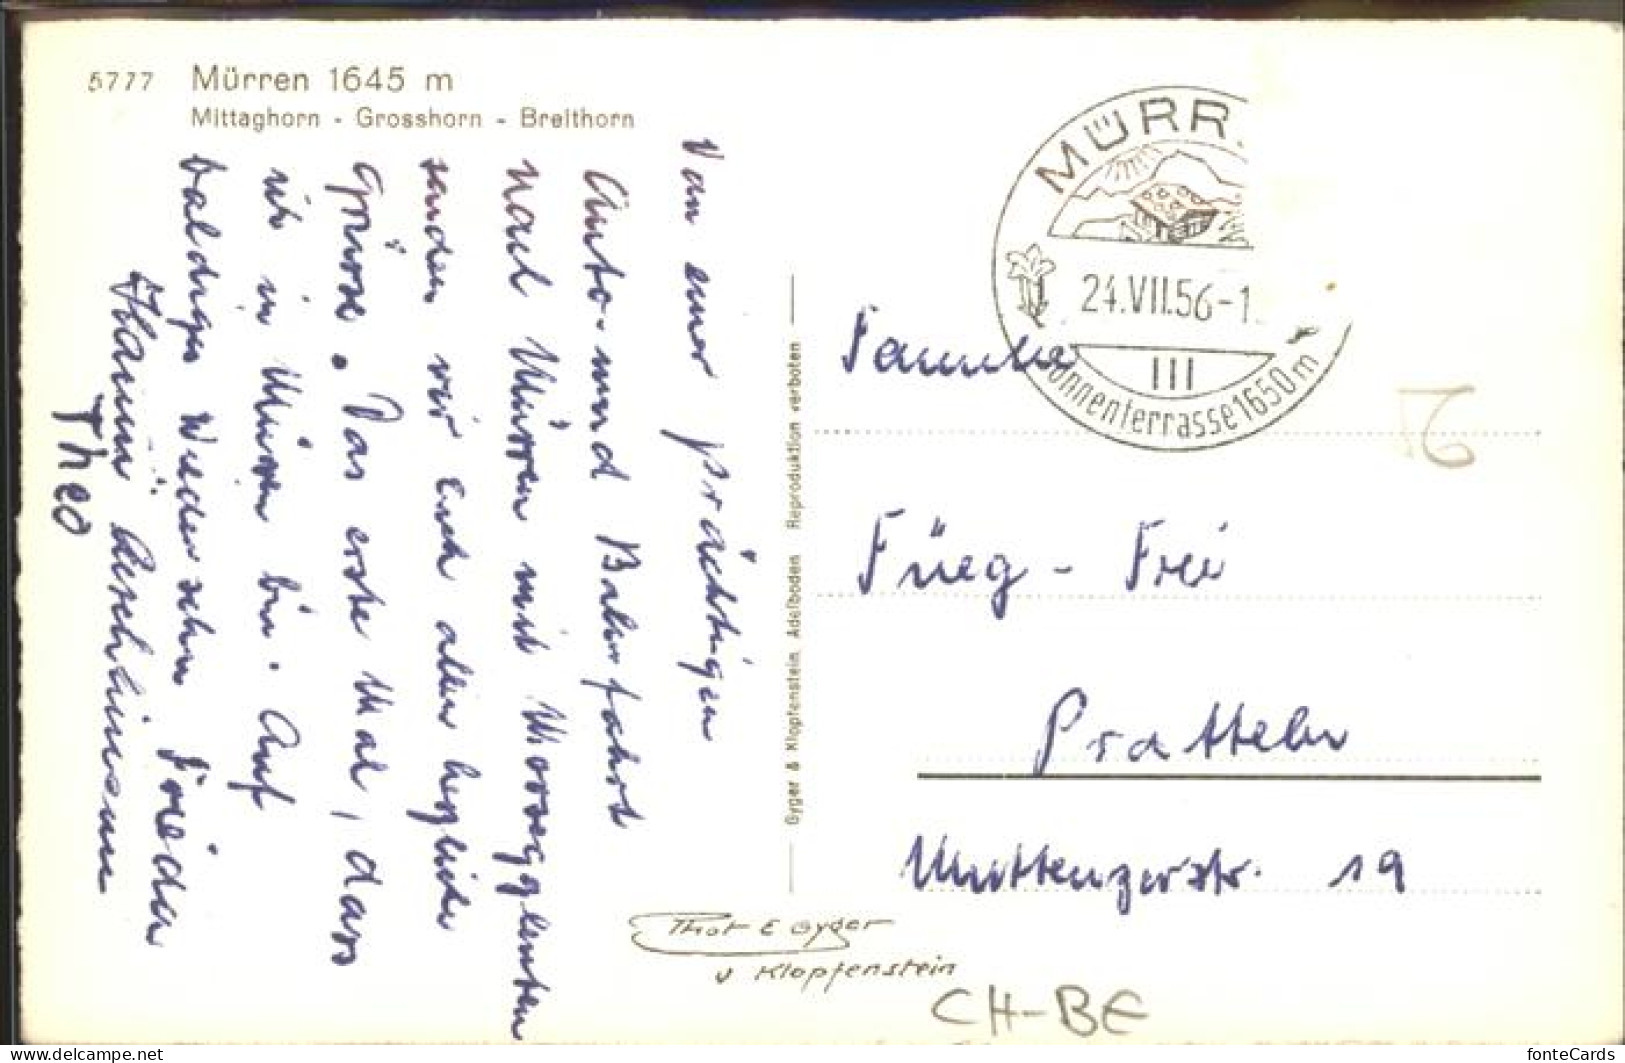 5777 Mürren 1645 m
Mittaghorn - Grosshorn - Breithorn
Von einer prächtigen
Auto- und Bahnfahrt
nach Mürren mit Morregglenten
senden wir Euch allen herzliche
Grüsse. Das erste Mal, dass
ich in Mürren bin. Auf
baldiges Wiedersehen Frieda
Hanni Aeschlimann
Theo
Gyger & Klopfenstein, Adelboden Reproduktion verboten
MÜRR
24.VII.56-1
III
onnenterrasse 1650 m
Familie
Füeg - Frei
Pratteln
Muttenzerstr. 19
Phot E Gyger
u Klopfenstein
CH-BE
fonteCards
© delcampe.net